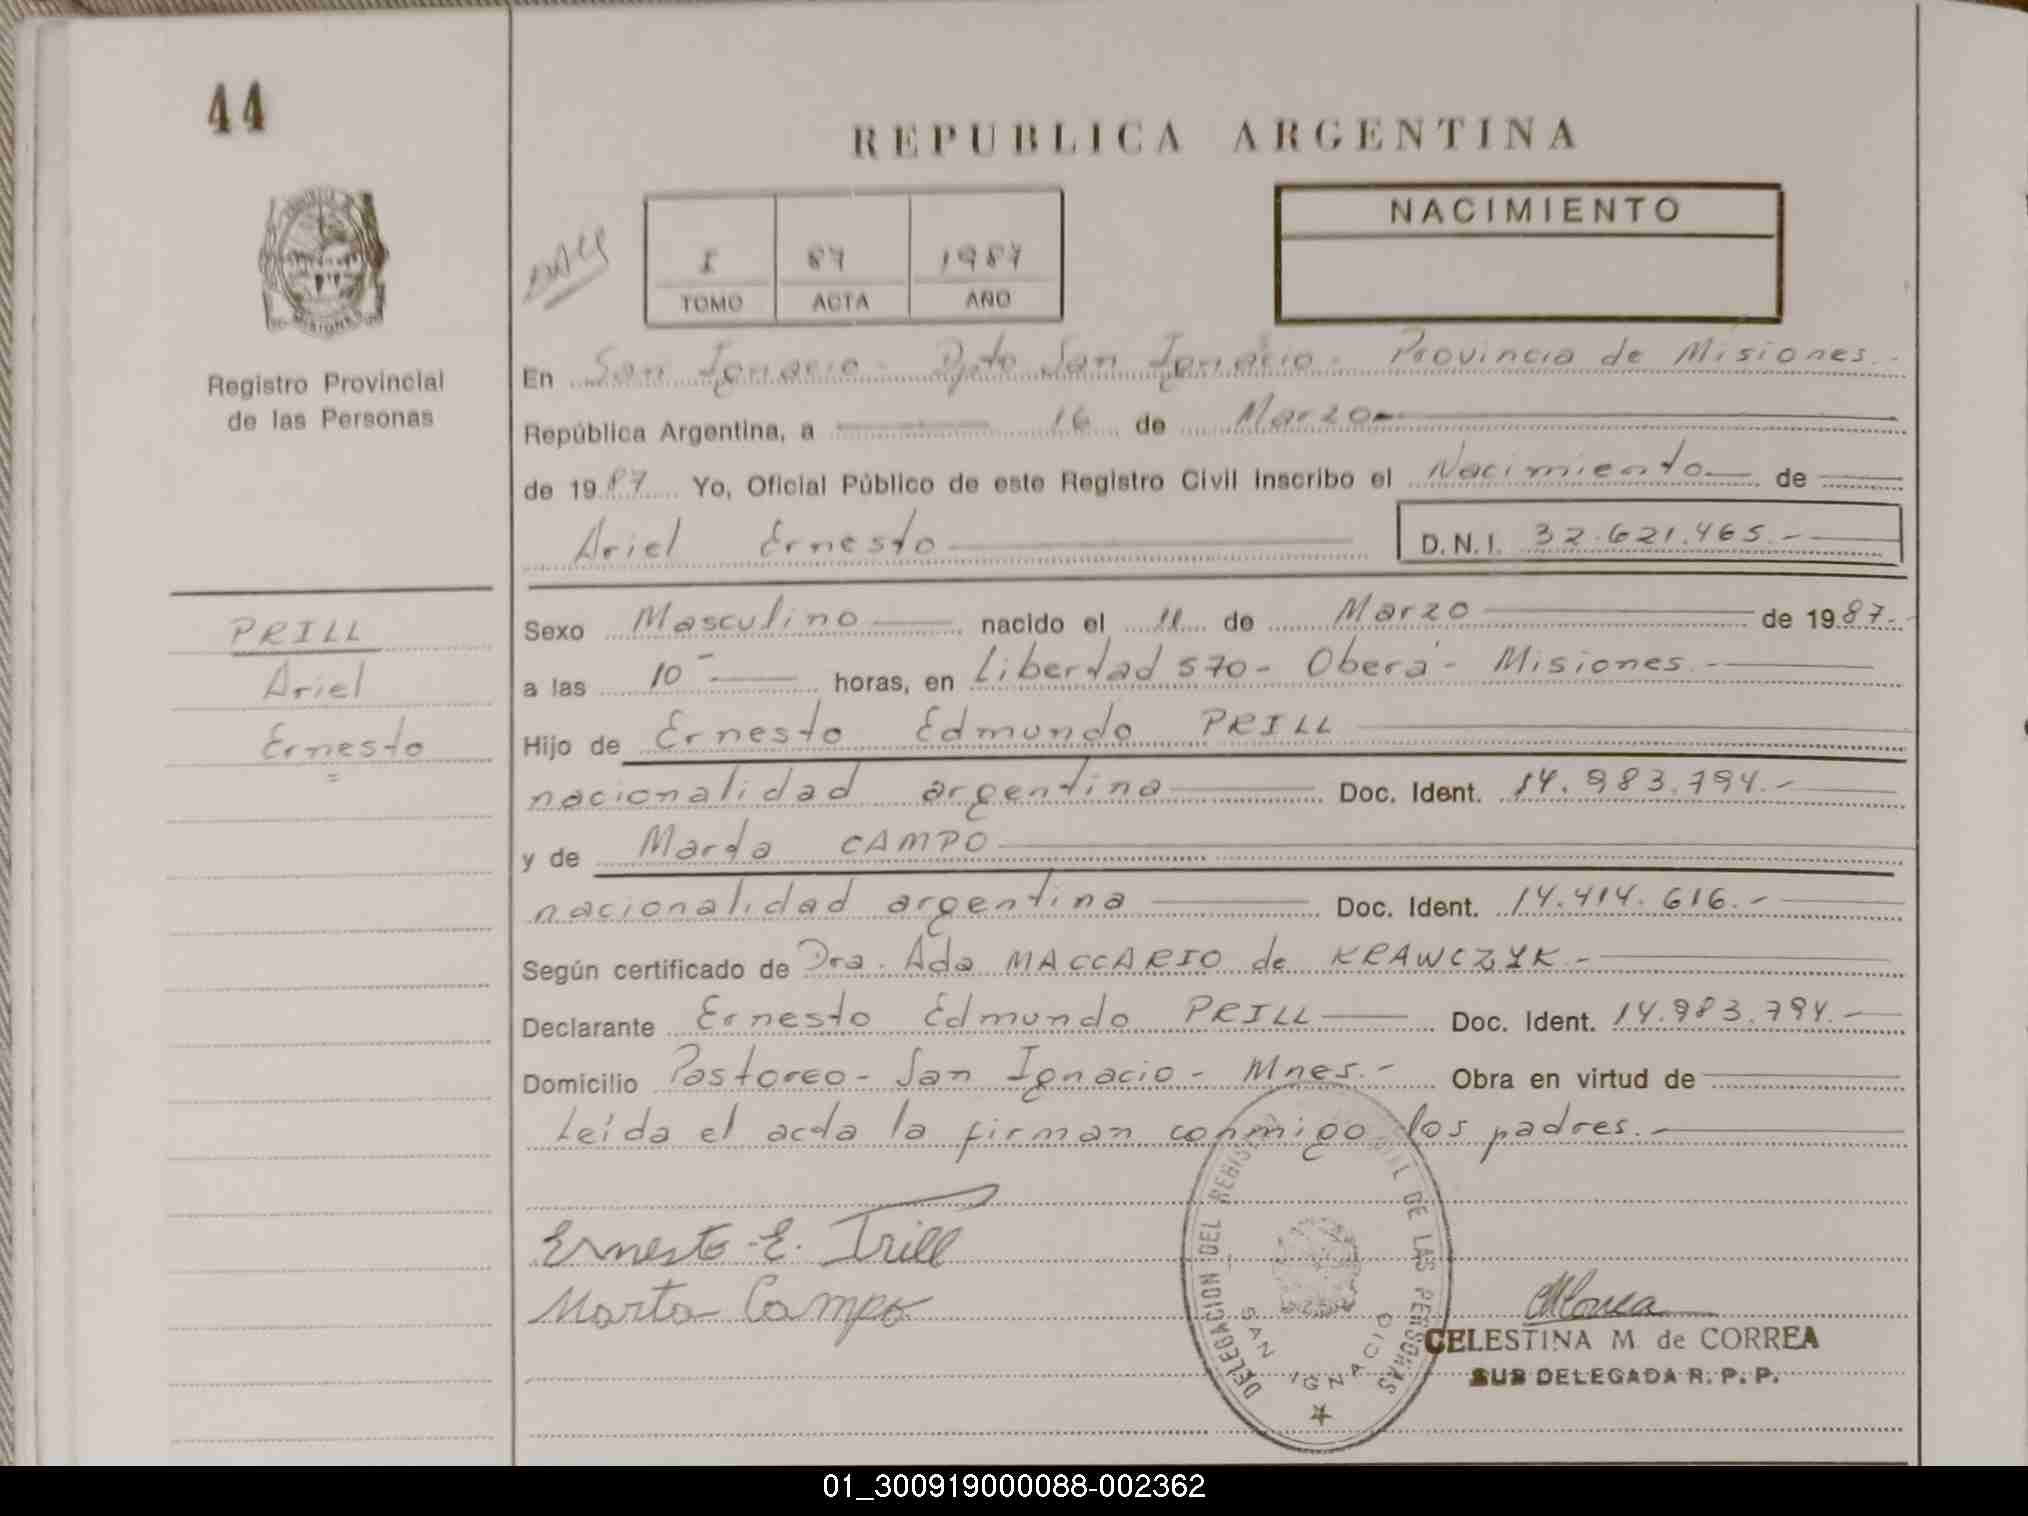 44
REPUBLICA ARGENTINA
NACIMIENTO
I 87 1987
TOMO ACTA AÑO
MISIONES
Registro Provincial
de las Personas
En San Ignacio - Dpto San Ignacio - Provincia de Misiones.-
República Argentina, a 16 de Marzo-
de 1987 Yo, Oficial Público de este Registro Civil inscribo el Nacimiento de
Ariel Ernesto D.N.I. 32.621.465.-
PRILL
Ariel
Ernesto
Sexo Masculino nacido el 11 de Marzo de 1987.-
a las 10- horas, en Libertad 570- Oberá- Misiones.-
Hijo de Ernesto Edmundo PRILL
nacionalidad argentina Doc. Ident. 14.983.794.-
y de Marta CAMPO
nacionalidad argentina Doc. Ident. 14.414.616.-
Según certificado de Dra. Ada MACCARIO de KRAWCZYK.-
Declarante Ernesto Edmundo PRILL Doc. Ident. 14.983.794.-
Domicilio Pastoreo- San Ignacio- Mnes.- Obra en virtud de
Leída el acta la firman conmigo los padres.-
Ernesto E. Prill
Marta Campo
DELEGACION DEL REGISTRO DE LAS PERSONAS
SAN IGNACIO
CELESTINA M. de CORREA
SUB DELEGADA R. P. P.
01_300919000088-002362